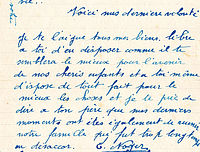 vie.
Voici mes dernière volonté
Je te laisse tous mes biens, libre
a toi d'en disposer comme il te
semblera le mieux pour l'avenir
de nos chéris enfants et a toi même
dispose de tout fait pour le
mieux les choses et je te prie de
dire a ton père que mes derniers
moments ont été également de
notre famille qui fut trop longtemps
au désaccor. E. Noyer